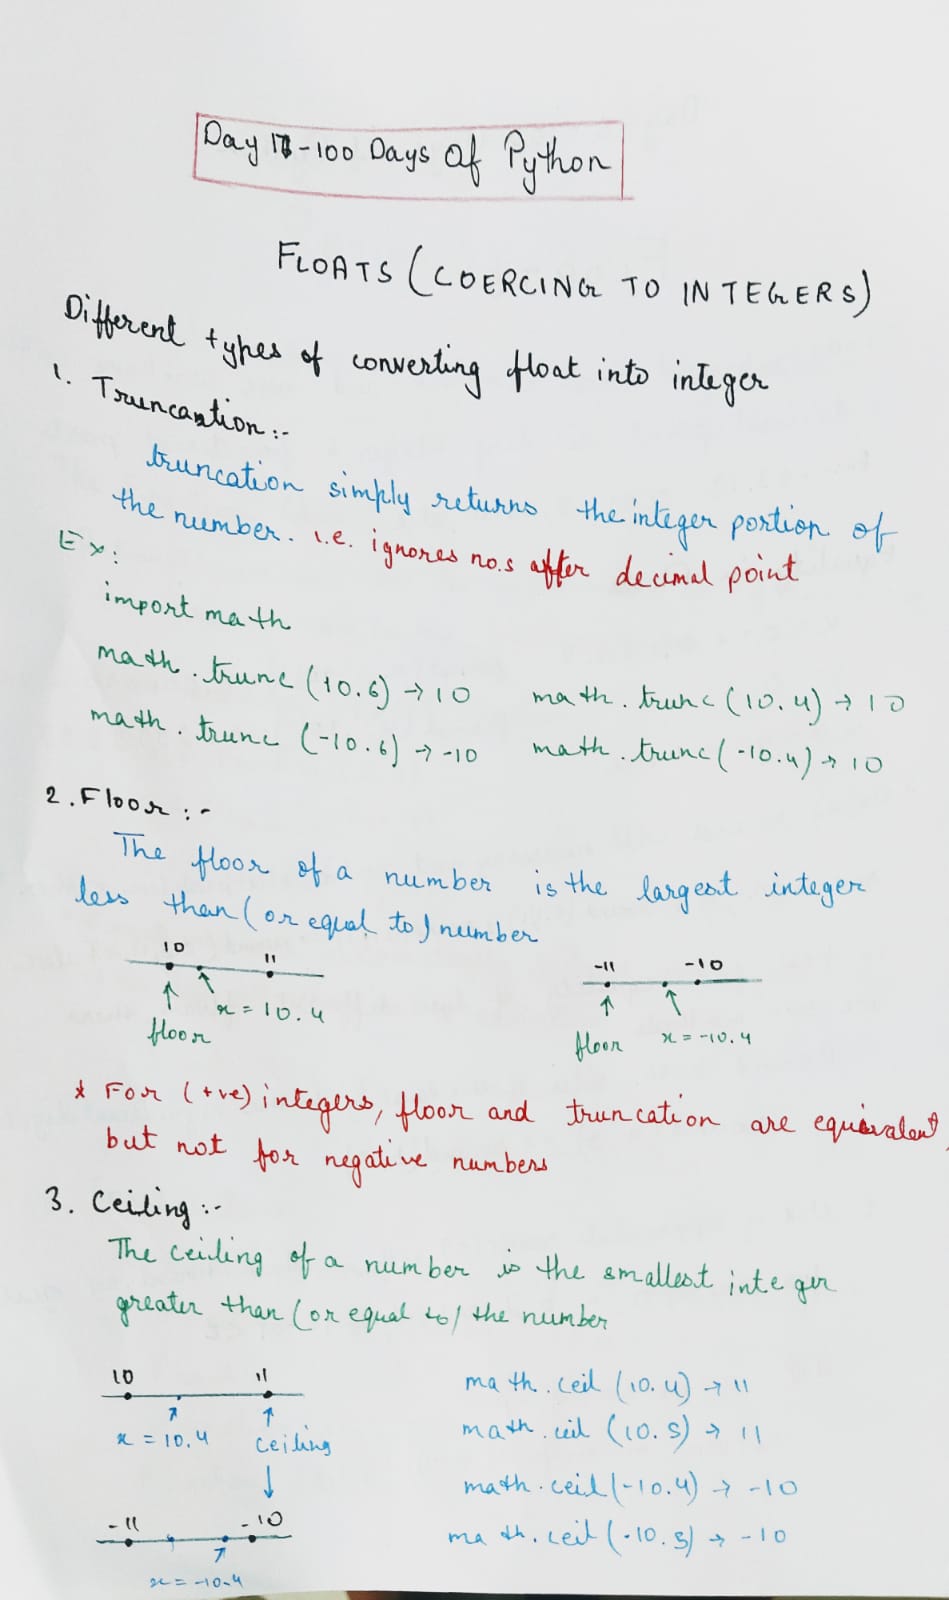 Day 17-100 Days of Python
FLOATS (COERCING TO INTEGERS)
Different types of converting float into integer
1. Truncation :-
truncation simply returns the integer portion of
the number. i.e. ignores no.s after decimal point
Ex:
import math
math.trunc (10.6) → 10 math.trunc (10.4) → 10
math.trunc (-10.6) → -10 math.trunc (-10.4) → 10
2. Floor :-
The floor of a number is the largest integer
less than (or equal to) number
10 11 -11 -10
x = 10.4 x = -10.4
floor floor
* For (+ve) integers, floor and truncation are equivalent,
but not for negative numbers
3. Ceiling :-
The ceiling of a number is the smallest integer
greater than (or equal to) the number
10 11 math.ceil (10.4) → 11
x = 10.4 ceiling math.ceil (10.5) → 11
math.ceil (-10.4) → -10
-11 -10 math.ceil (-10.5) → -10
x = -10.4